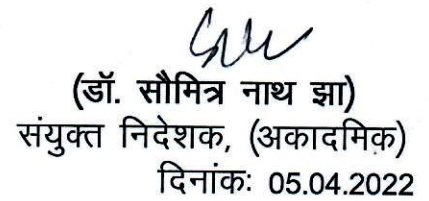 (डॉ. सौमित्र नाथ झा)
संयुक्त निदेशक, (अकादमिक)
दिनांकः 05.04.2022